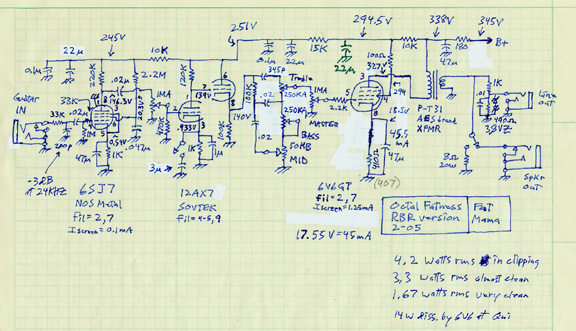 251V
294.5V
338V
345V
245V
22µ
10K
0.1µ
22µ
345P
15K
22µ
100Ω
327V
10K
180
47µ
B+
0.1µ
220K
.02µ
2.2M
139V
100K
Treble
250KA
1MA
146.3V
1MA
.02
250KA
MASTER
2.2K
294
P-T31
AES brand
XFMR
1K
Line
out
Guitar
IN
33K
33K
.02µ
1M
0.94V
1K
47µ
.933V
1K
1µ
3µ
100K
140V
.02
BASS
50KB
MID
18.5V
45.5
mA
47µ
(407)
8Ω
20W
Spkr
out
-3dB
at 24KHZ
6SJ7
NOS Metal
fil = 2,7
Iscreen = 0.1mA
12AX7
SOVTEK
fil = 4-5,9
6V6GT
fil = 2,7
Iscreen = 1.25mA
17.55V = 45mA
Octal Fatness
RBR version
2-05
Fat
Mama
4.2 Watts rms in clipping
3.3 watts rms almost clean
1.67 watts rms very clean
14W diss. by 6V6 at Qui